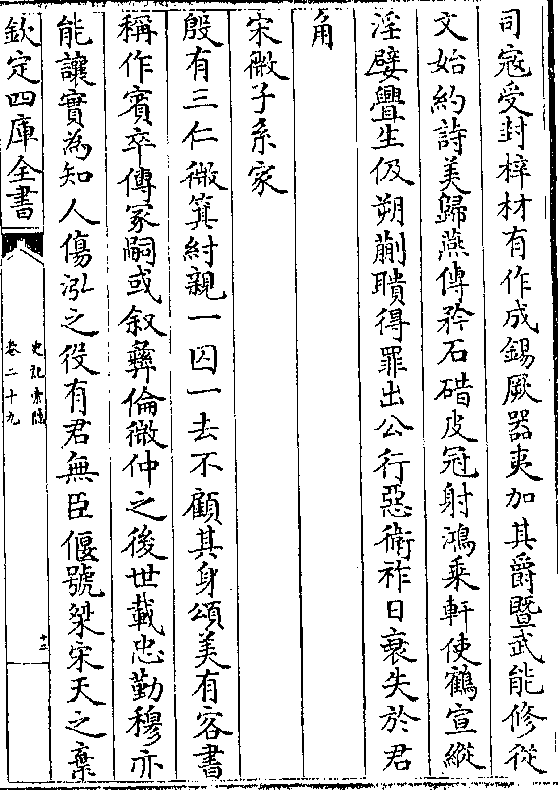 司寇受封梓材有作成錫厥器夷加其爵暨武能修從
文始約詩美歸燕傳矜石碏皮冠射鴻乘軒使鶴宣縱
淫嬖釁生伋朔蒯聵得罪出公行惡衛祚日衰失於君
角
宋微子系家
殷有三仁微箕紂親一囚一去不顧其身頌美有容書
稱作賓卒傳冢嗣或叙彞倫微仲之後世載忠勤穆亦
能讓實為知人傷泓之役有君無臣偃號桀宋天之棄
欽定四庫全書
史記索隱
卷二十九
十二